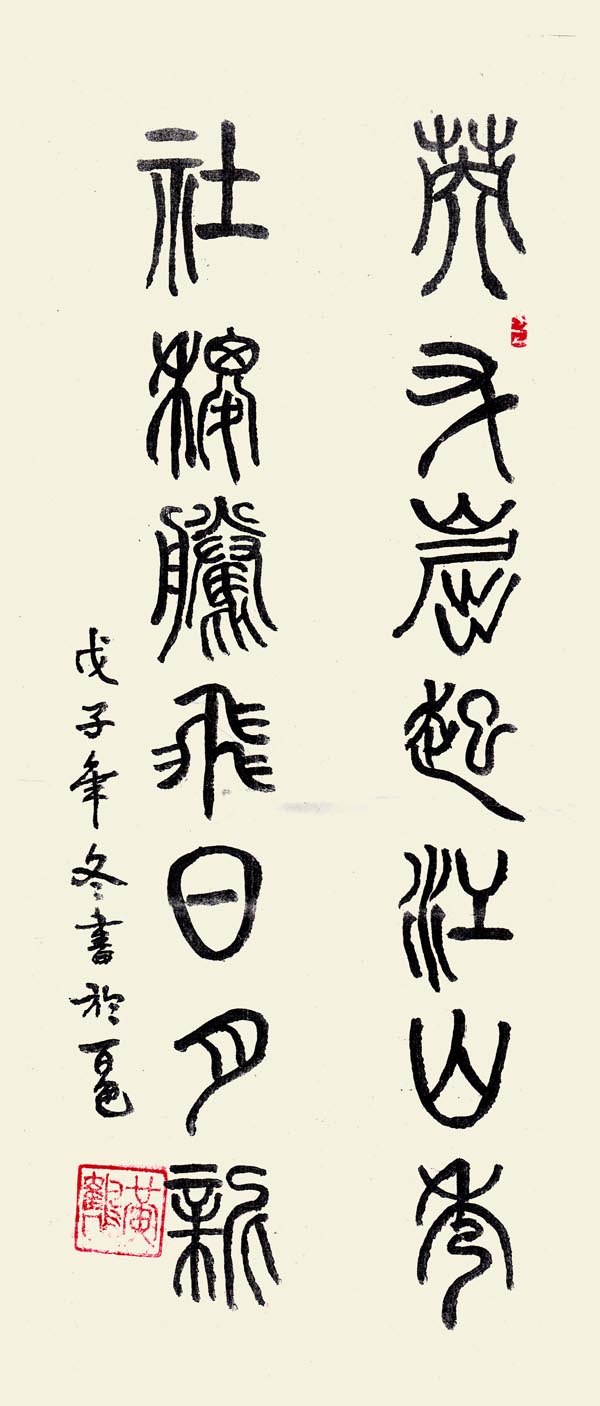 起江山秀
社稷騰飛日月新
戊子年冬書於百色